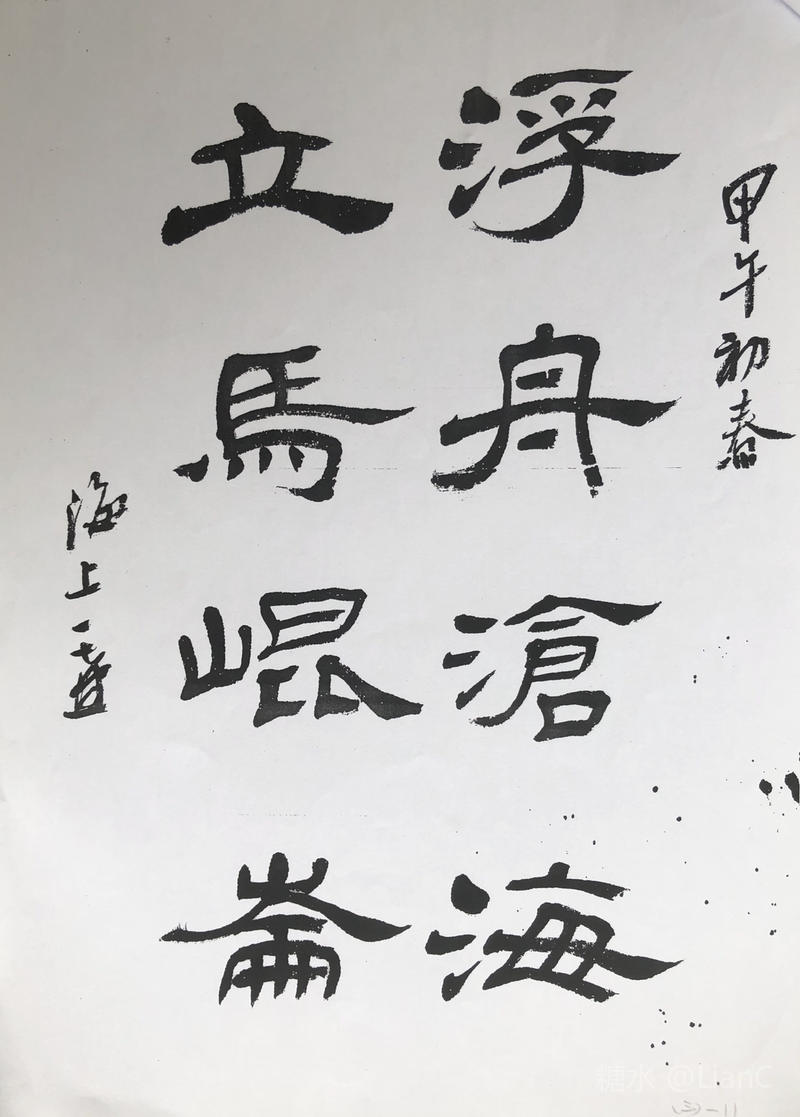 甲午初春
浮舟滄海
立馬崐崙
海上一
糖水 @LianC
(三)-11